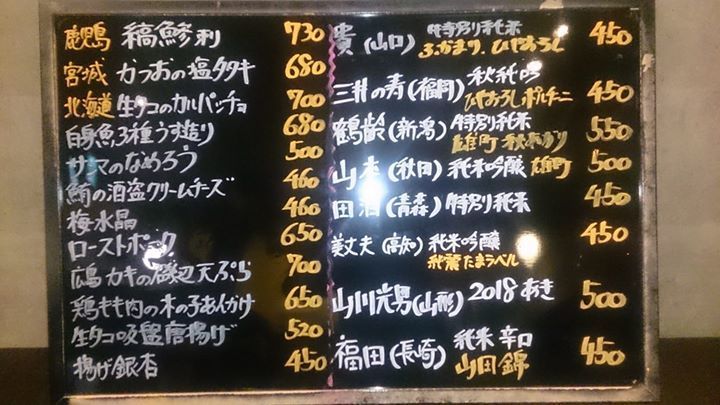 鹿児島 縞鯵刺 730
宮城 かつおの塩タタキ 680
北海道 生タコのカルパッチョ 700
白身魚3種うす造り 680
サンマのなめろう 500
鮪の酒盗クリームチーズ 460
梅水晶 460
ローストポーク 650
広島 カキの磯辺天ぷら 700
鶏もも肉の木の子あんかけ 650
生タコ吸盤唐揚げ 520
揚げ銀杏 450
貴(山口) 特別純米 450
ふかまり ひやおろし
三井の寿(福岡) 秋純吟
ひやおろしポルチーニ 450
鶴齢(新潟) 特別純米 550
雄町 秋あがり
山本(秋田) 純米吟醸 雄町 500
田酒(青森) 特別純米 450
美丈夫(高知) 純米吟醸 450
秋麗 たまラベル
山川光男(山形) 2018 あき 500
福田(長崎) 純米 辛口 450
山田錦